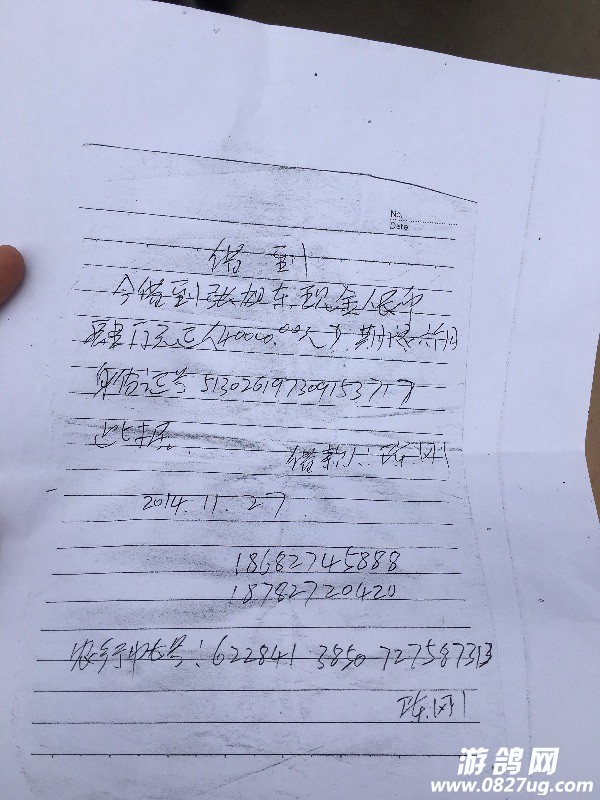 No.
Date
借到
今借到张旭东现金人民币
肆万元正(40000.00元)期限六个月
身份证号 513026197309153717
此据. 借款人:陈刚
2014.11.27
18682745888
18782720420
农行卡号:622841 3850 727587313
陈刚
游鸽网
www.0827ug.com